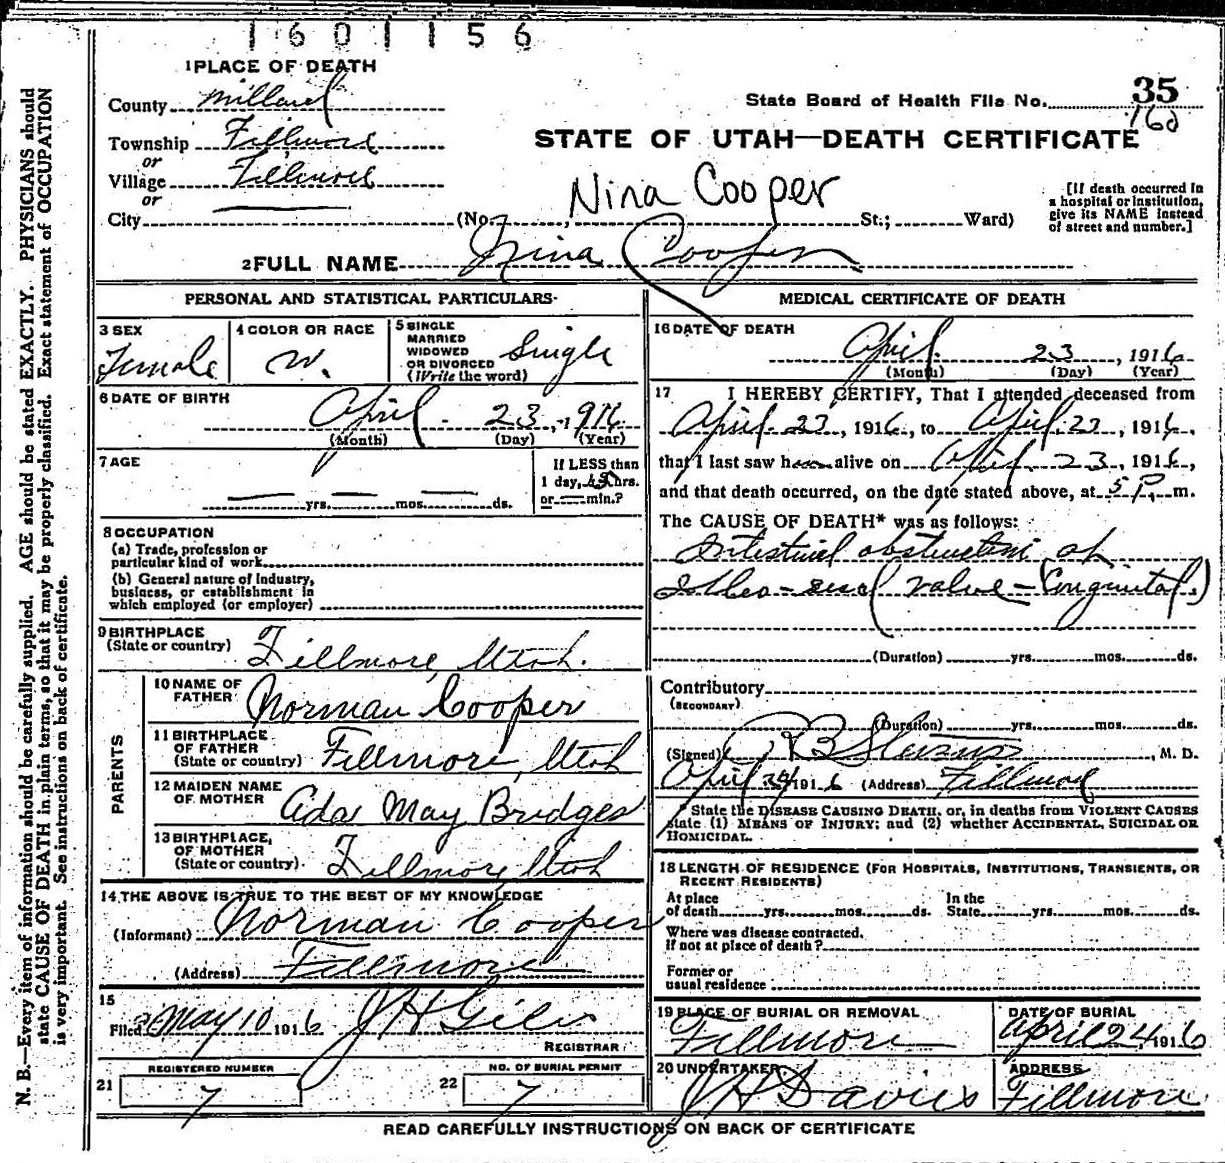 1601156
1 PLACE OF DEATH
County Millard
State Board of Health File No. 35
160
Township Fillmore
or
STATE OF UTAH—DEATH CERTIFICATE
Village Fillmore
or
Nina Cooper
City (No. St.; Ward)
[If death occurred in
a hospital or institution,
give its NAME instead
of street and number.]
2 FULL NAME Nina Cooper
PERSONAL AND STATISTICAL PARTICULARS
3 SEX
Female
4 COLOR OR RACE
W.
5 SINGLE
MARRIED
WIDOWED
OR DIVORCED
(Write the word)
Single
6 DATE OF BIRTH
April 23, 1916
(Month) (Day) (Year)
7 AGE
yrs. mos. ds.
If LESS than
1 day, hrs.
or min.?
8 OCCUPATION
(a) Trade, profession or
particular kind of work
(b) General nature of Industry,
business, or establishment in
which employed (or employer)
9 BIRTHPLACE
(State or country) Fillmore, Utah.
PARENTS
10 NAME OF
FATHER Norman Cooper
11 BIRTHPLACE
OF FATHER
(State or country) Fillmore, Utah
12 MAIDEN NAME
OF MOTHER Ada May Bridges
13 BIRTHPLACE,
OF MOTHER
(State or country) Fillmore, Utah
14 THE ABOVE IS TRUE TO THE BEST OF MY KNOWLEDGE
(Informant) Norman Cooper
(Address) Fillmore
15
Filed May 10 1916 J H Giles
REGISTRAR
21 REGISTERED NUMBER
7
22 NO. OF BURIAL PERMIT
7
MEDICAL CERTIFICATE OF DEATH
16 DATE OF DEATH
April 23, 1916
(Month) (Day) (Year)
17 I HEREBY CERTIFY, That I attended deceased from
April 23, 1916, to April 23, 1916,
that I last saw h alive on April 23, 1916,
and that death occurred, on the date stated above, at 5 P. m.
The CAUSE OF DEATH* was as follows:
Intestinal obstruction at
valve - Conginital.)
(Duration) yrs. mos. ds.
Contributory
(SECONDARY)
(Duration) yrs. mos. ds.
(Signed) R B Stevens, M. D.
April 24 1916 (Address) Fillmore
* State the DISEASE CAUSING DEATH, or, in deaths from VIOLENT CAUSES
state (1) MEANS OF INJURY; and (2) whether ACCIDENTAL, SUICIDAL OR
HOMICIDAL.
18 LENGTH OF RESIDENCE (FOR HOSPITALS, INSTITUTIONS, TRANSIENTS, OR
RECENT RESIDENTS)
At place
of death yrs. mos. ds.
In the
State yrs. mos. ds.
Where was disease contracted.
If not at place of death?
Former or
usual residence
19 PLACE OF BURIAL OR REMOVAL
Fillmore
DATE OF BURIAL
April 24, 1916
20 UNDERTAKER
J H Davies
ADDRESS
Fillmore
READ CAREFULLY INSTRUCTIONS ON BACK OF CERTIFICATE
N. B.—Every item of information should be carefully supplied. AGE should be stated EXACTLY. PHYSICIANS should
state CAUSE OF DEATH in plain terms, so that it may be properly classified. Exact statement of OCCUPATION
is very important. See instructions on back of certificate.